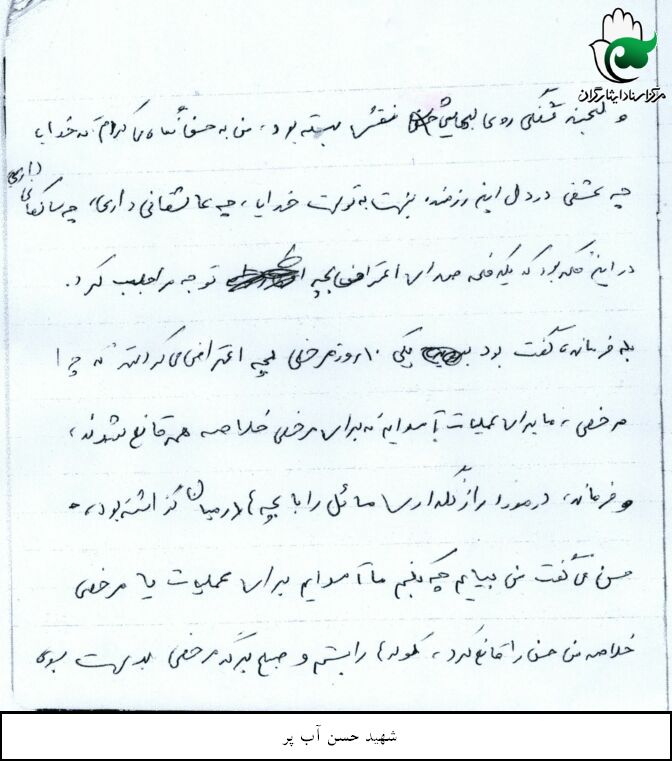 مرکز اسناد ایثارگران
و لبخند قشنگی روی لبهایش نقش بسته بود، من به حسن نگاه می کردم که خدایا
چه عشقی در دل این رزمنده نسبت به توست خدایا، چه عاشقانی داری، چه داری
در این فکر بودم که یکدفعه صدای اعتراض بچه توجه مرا جلب کرد.
بله فرمانده گفت بود یکی ۱۰ روز مرخصی بچه اعتراض می کردند که چرا
مرخصی، ما برای عملیات آمدیم نه برای مرخصی خلاصه همه قانع نشدند،
و فرمانده در مورد راز نگهداری مسائل را با بچه ها در میان گذاشته بود،
حسن می گفت من بیایم چه بگم ما آمدیم برای عملیات یا مرخصی
خلاصه من حسن را قانع کردم، کوله ها را بستیم و صبح برگه مرخصی بدست بسوی
شهید حسن آب پر